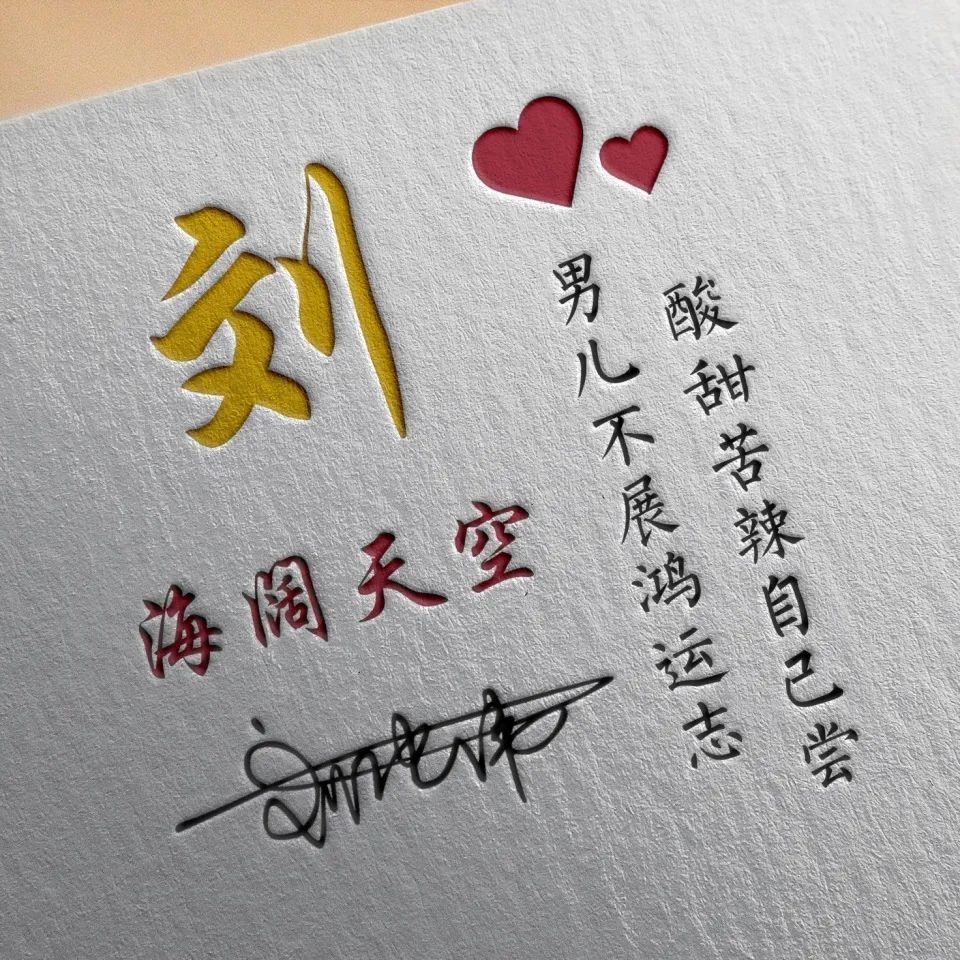 刘
海阔天空
酸甜苦辣自己尝
男儿不展鸿运志